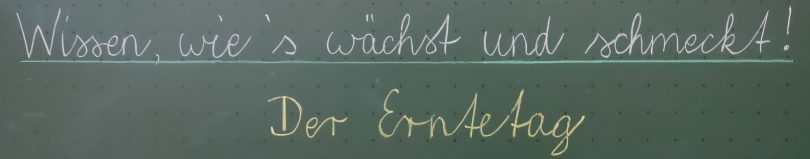 Wissen, wie's wächst und schmeckt!
Der Erntetag